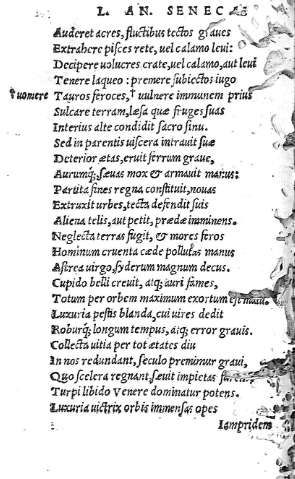 L. AN. SENECAE
Auderet acres, fluctibus tectos graues
Extrahere pisces rete, uel calamo leui:
Decipere uolucres crate, uel calamo, aut leui
Tenere laqueo: premere subiectos iugo
†uomere Tauros feroces, † uulnere immunem prius
Sulcare terram, læsa quæ fruges suas
Interius alte condidit sacro sinu.
Sed in parentis uiscera intrauit suæ
Deterior ætas, eruit ferrum graue,
Aurumq́; sæuas mox & armauit manus:
Partita fines regna constituit, nouas
Extruxit urbes, tecta defendit suis
Aliena telis, aut petit, prædæ imminens.
Neglecta terras fugit, & mores feros
Hominum cruenta cæde pollutas manus
Astrea uirgo, syderum magnum decus.
Cupido belli creuit, atq; auri fames,
Totum per orbem maximum exortum est
Luxuria pestis blanda, cui uires dedit
Roburq́; longum tempus, atq; error grauis.
Collecta uitia per tot ætates diu
In nos redundant, seculo premimur graui,
Quo scelera regnant, sæuit impietas
Turpi libido Venere dominatur potens.
Luxuria uictrix orbis immensas opes
Iampridem